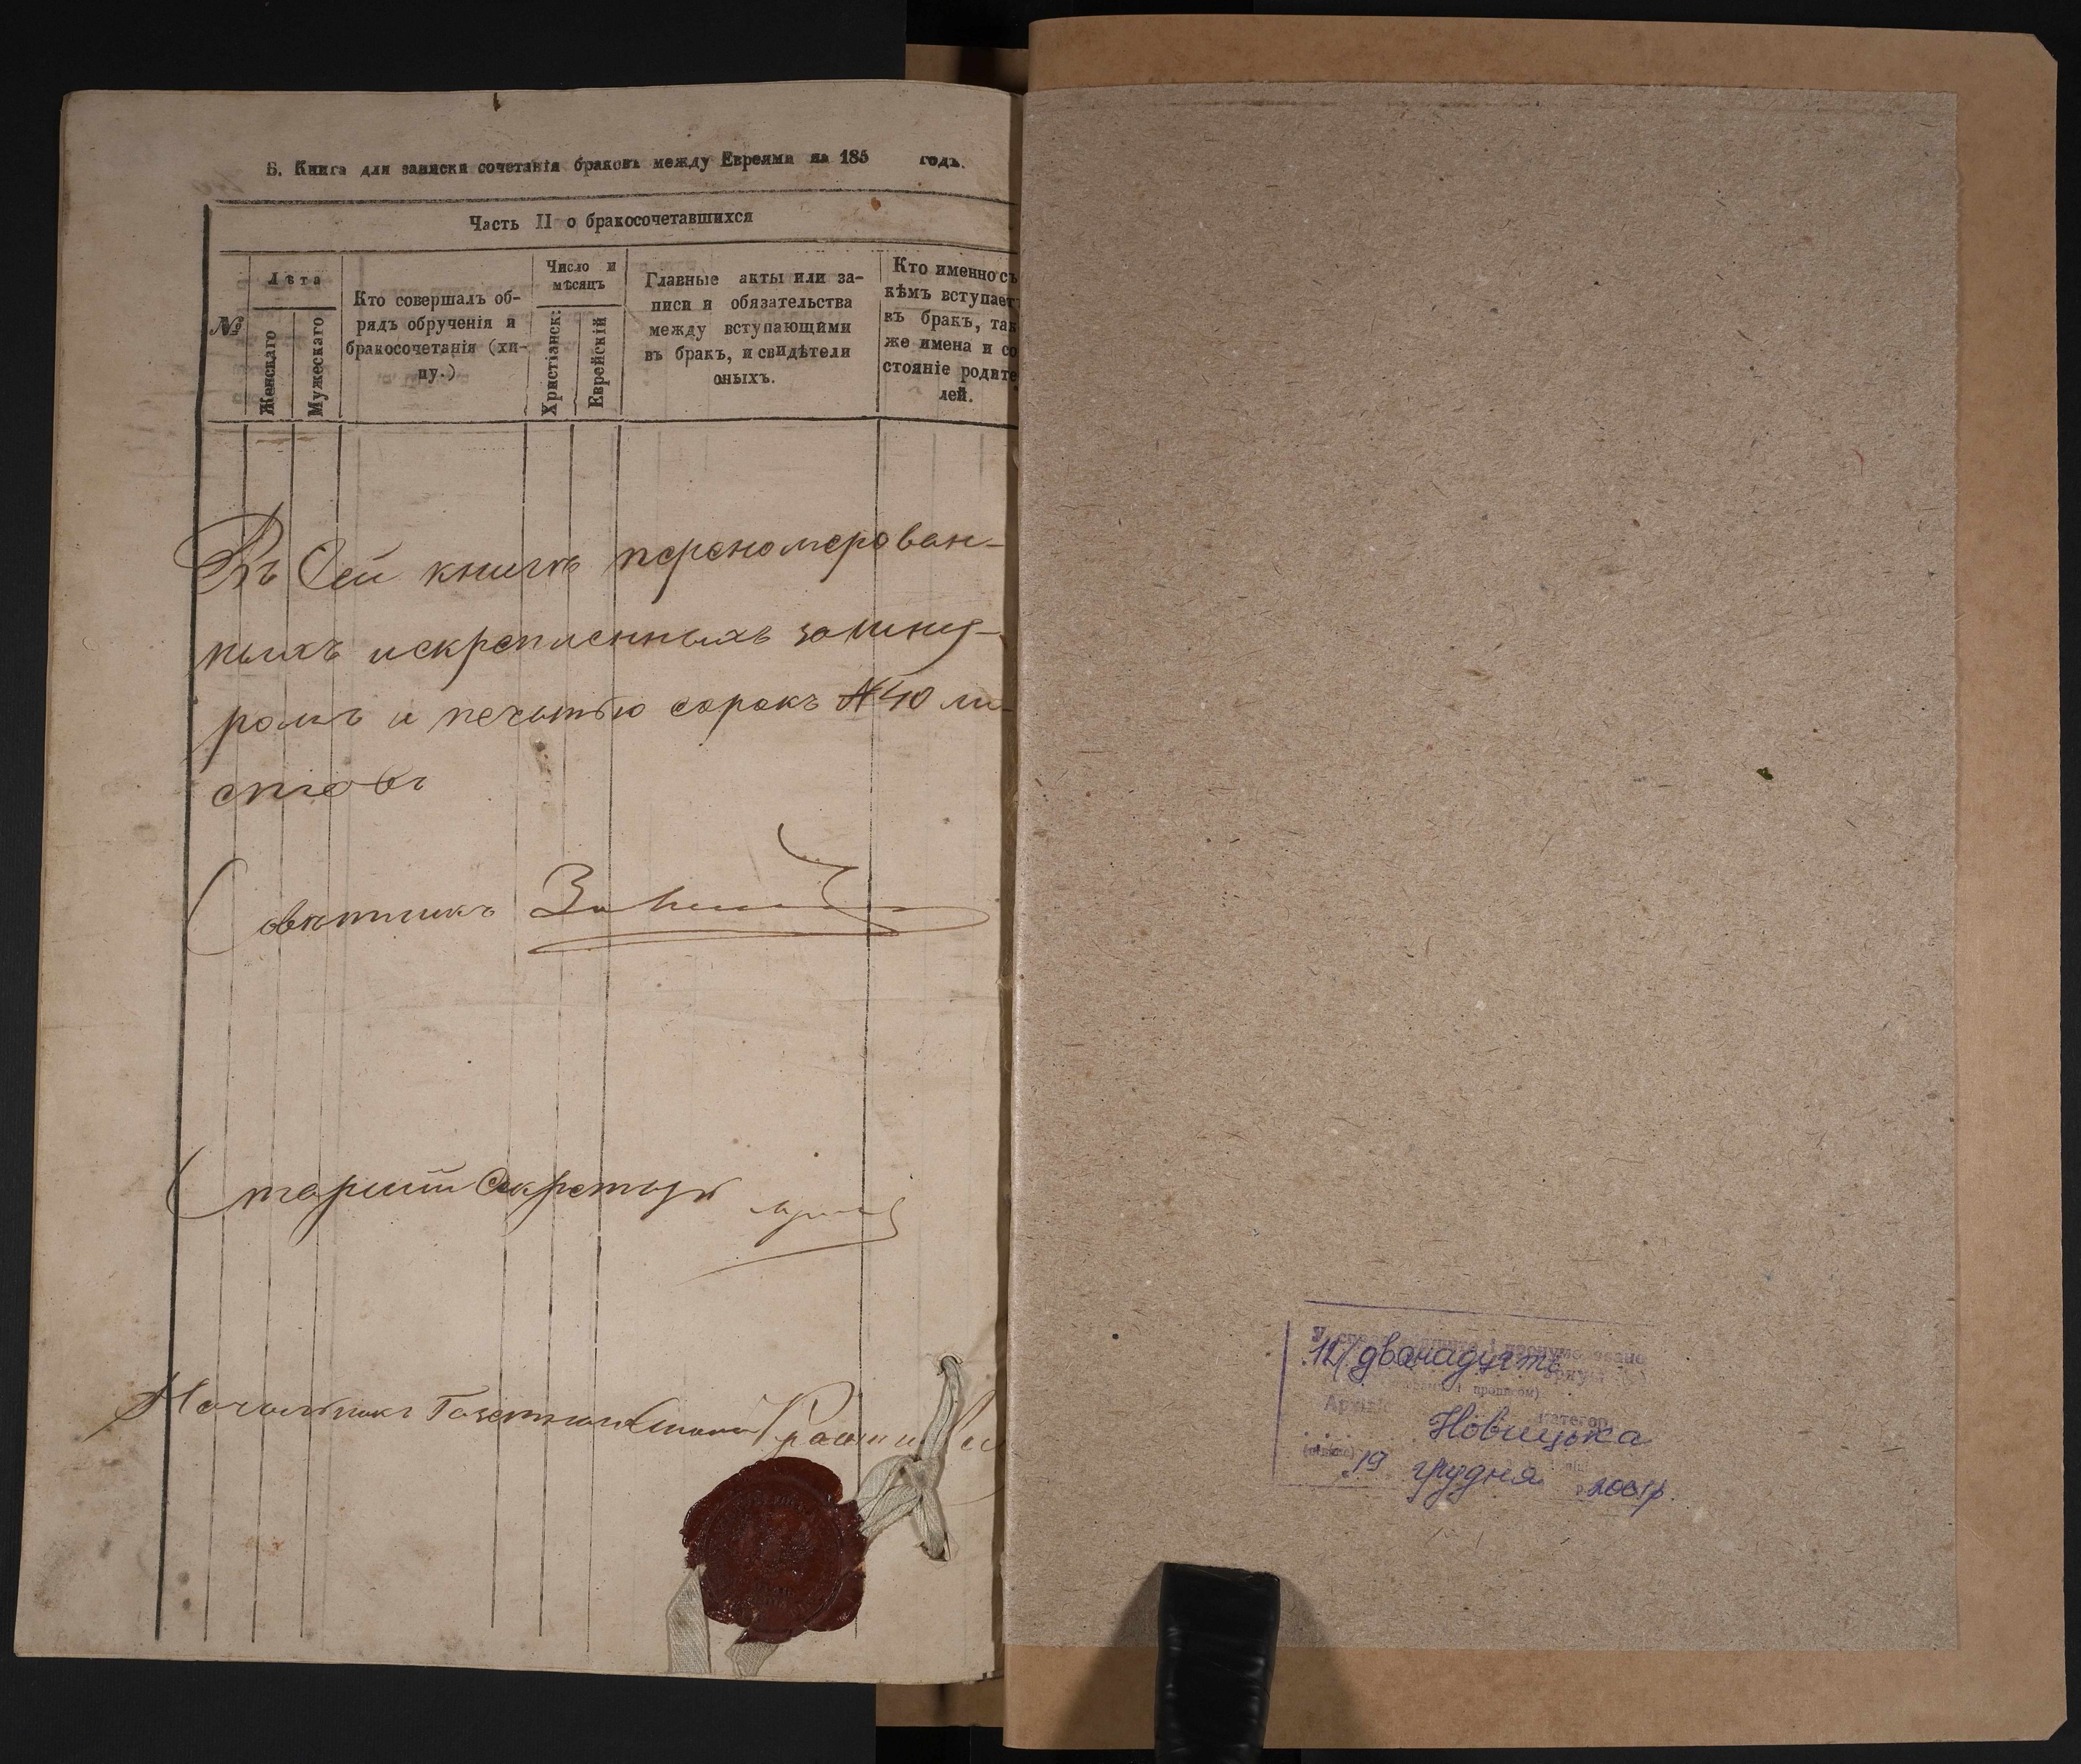 Б. Книга для записки сочетанія браковъ между Евреями на 185 годъ.
Часть II о бракосочетавшихся
№
Лѣта
Женскаго
Мужескаго
Кто совершалъ об-
рядъ обрученія и
бракосочетанія (хи-
пу.)
Число и
мѣсяцъ
Христіанск:
Еврейскій
Главные акты или за-
писи и обязательства
между вступающими
въ бракъ, и свидѣтели
оныхъ.
Кто именно съ
кѣмъ вступает
въ бракъ, так
же имена и со
стояніе родите
лей.
Въ Сей книгѣ перономерован-
ныхъ искрепленныхъ зашну-
ромъ и печатью сорокъ № 40 ли-
стовъ
Совѣтникъ
Старшій Секретарь
Начальникъ Газетнаго Стола
12/дванадцять
Новицька
19 грудня